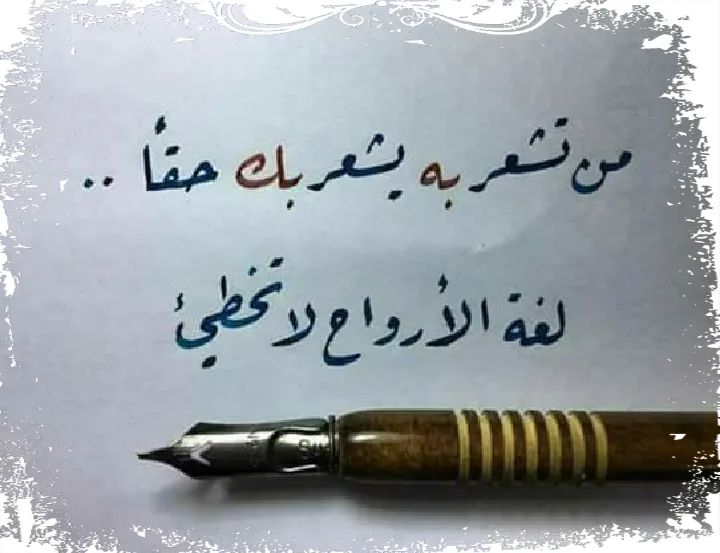 من تشعر به يشعر بك حقاً ..
لغة الأرواح لا تخطيئ